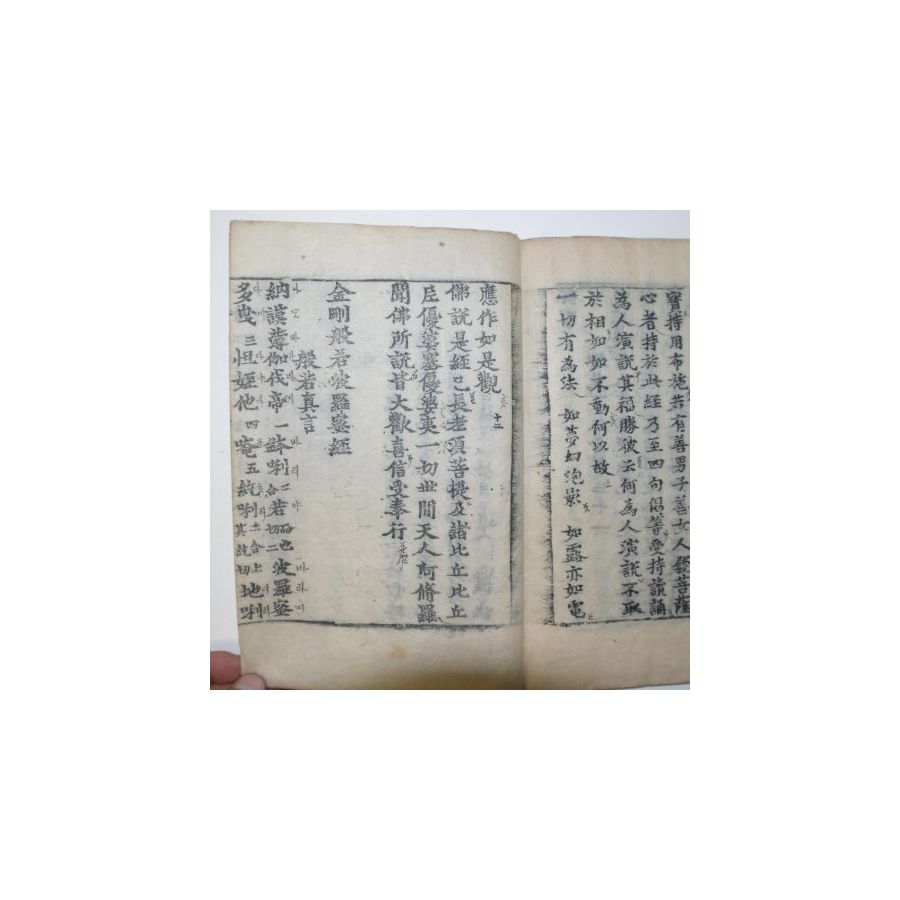 寶持用布施若有善男子善女人發菩薩
心者持於此經乃至四句偈等受持讀誦
為人演說其福勝彼云何為人演說不取
於相如如不動何以故
一切有為法 如夢幻泡影 如露亦如電
應作如是觀
佛說是經已長老須菩提及諸比丘比丘
尼優婆塞優婆夷一切世間天人阿脩羅
聞佛所說皆大歡喜信受奉行
金剛般若波羅蜜經
般若真言
納謨薄伽伐帝 一 鉢唎 二合 若 波羅蜜
多曳 三 怛姪他 四 唵 五 紇唎 二合上 地唎